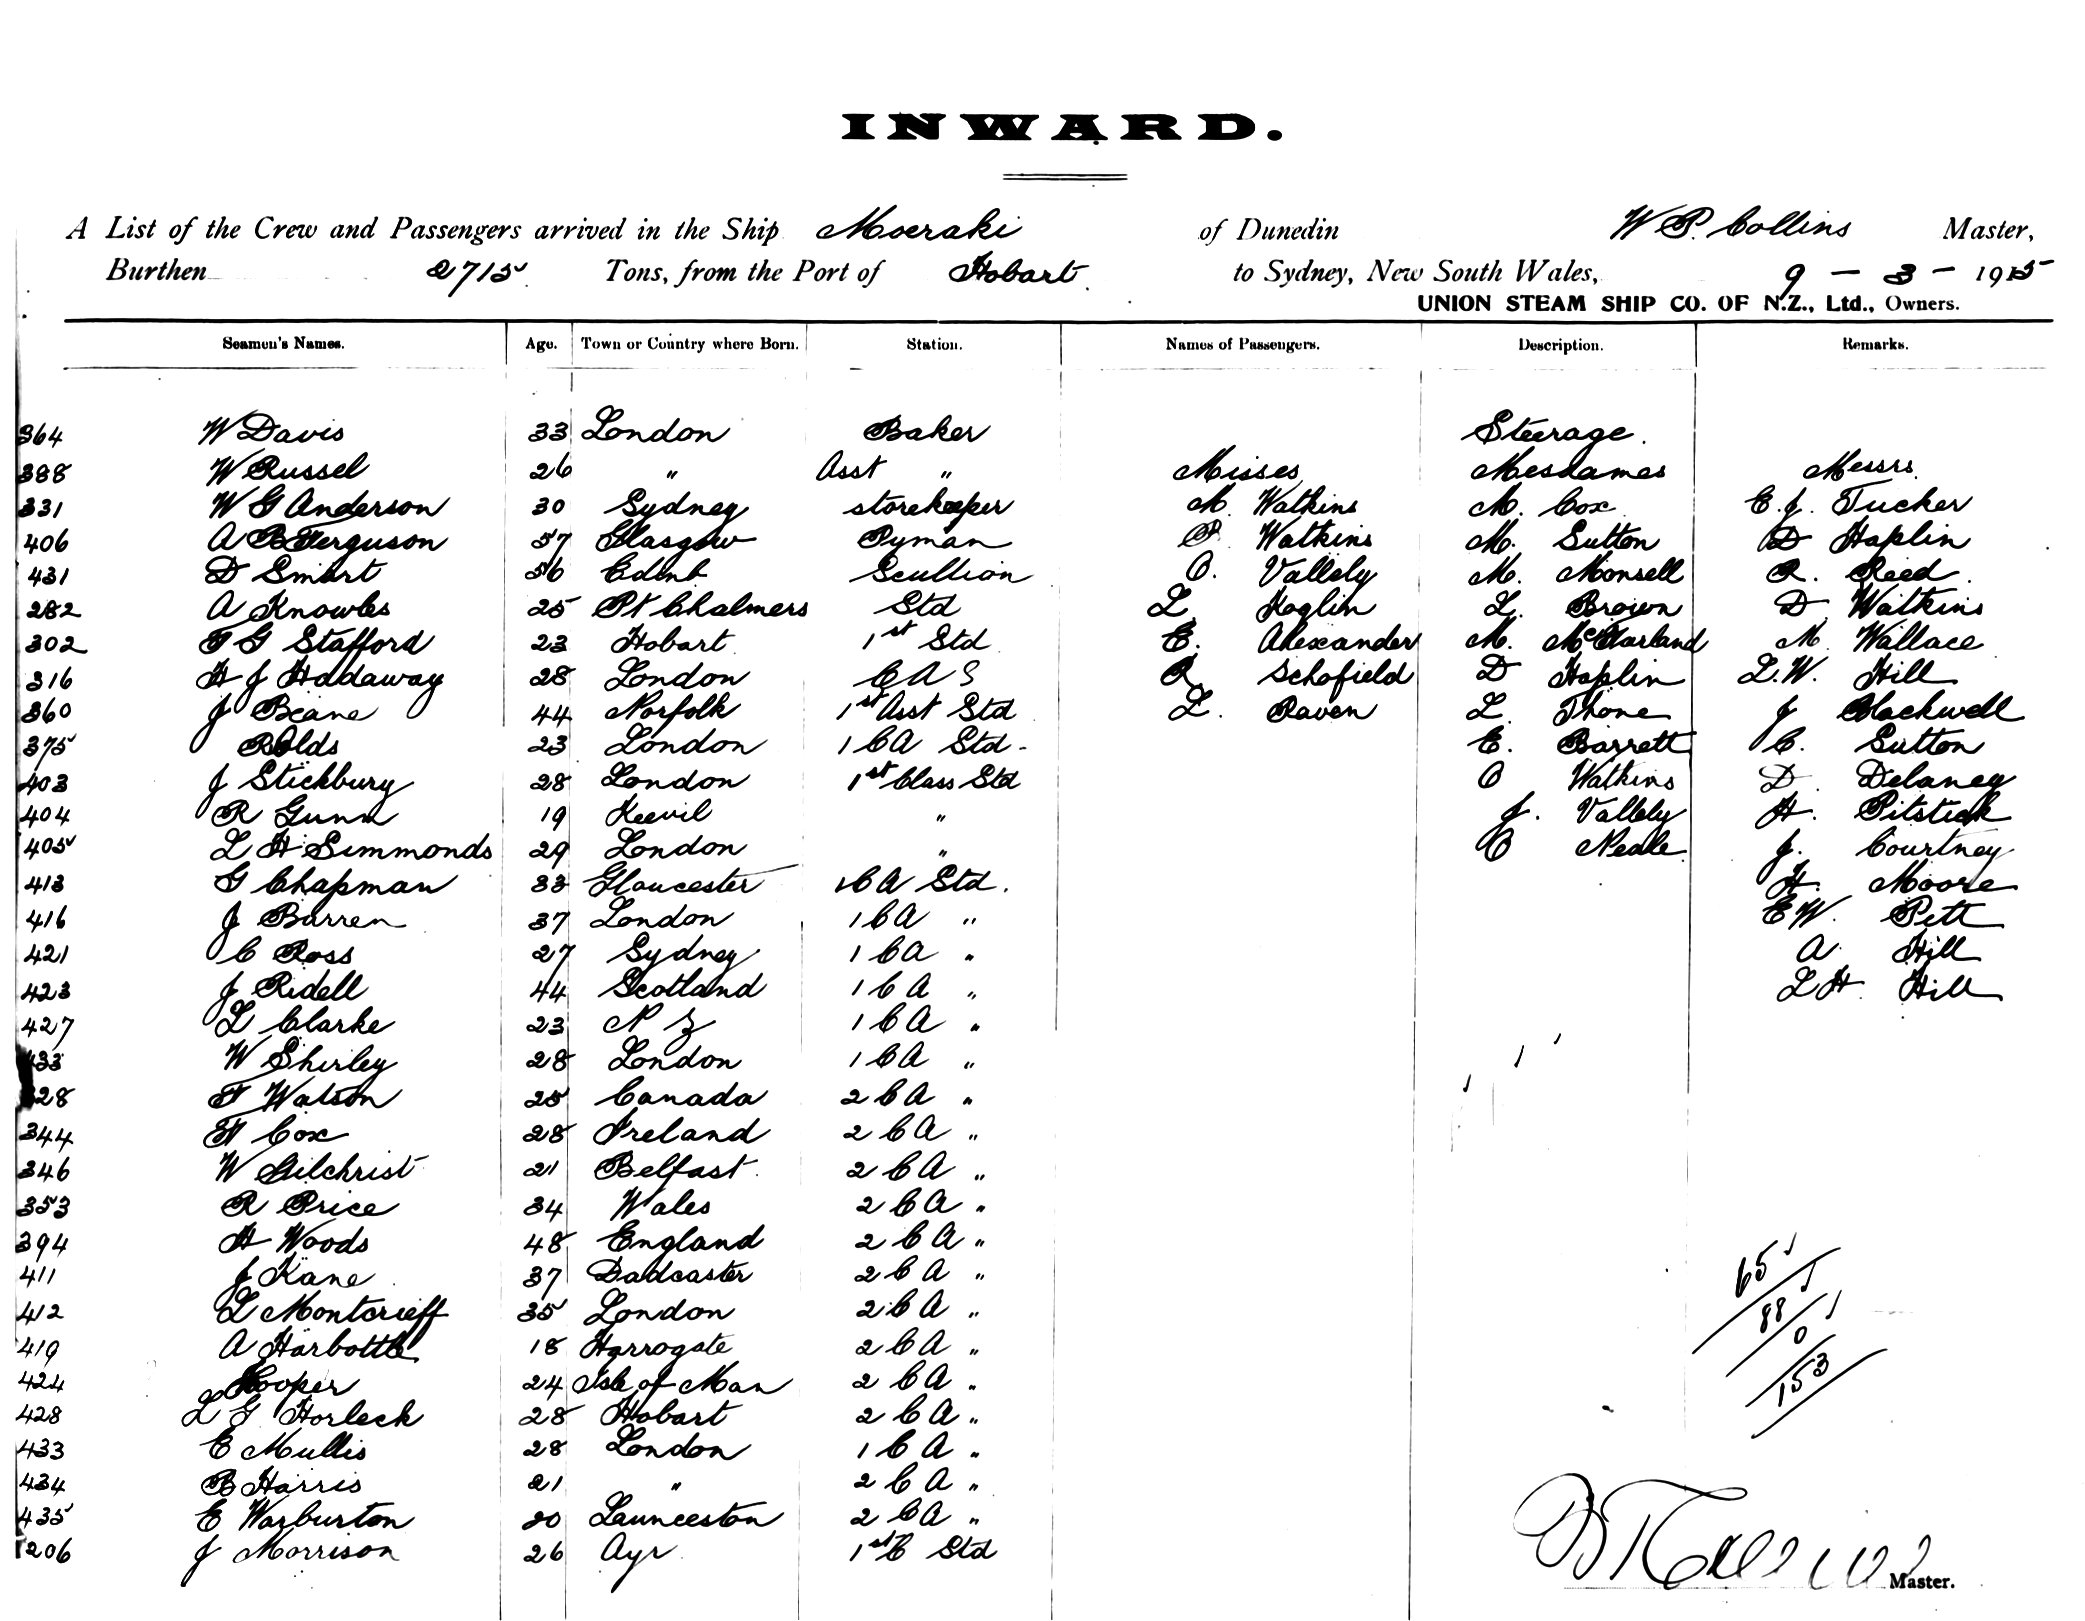 INWARD.
A List of the Crew and Passengers arrived in the Ship Moeraki of Dunedin W P. Collins Master,
Burthen 2715 Tons, from the Port of Hobart to Sydney, New South Wales, 9 - 3 - 1915
UNION STEAM SHIP CO. OF N.Z., Ltd., Owners.
Seamen's Names. Age. Town or Country where Born. Station. Names of Passengers. Description. Remarks.
364 W Davis 33 London Baker Steerage.
388 W Russel 26 " Asst " Misses Mesdames Messrs.
331 W G Anderson 30 Sydney storekeeper M. Watkins M. Cox E. J. Tucker
406 A B Ferguson 57 Glasgow Pyman P. Watkins M. Sutton D Haplin
431 D Smart 56 Edinb Scullion O. Vallely M. Monsell R. Reed
282 A Knowles 25 Pt Chalmers Std L. Hoglin L. Brown D Watkins
302 F G Stafford 23 Hobart 1st Std E. Alexander M. McFarland M Wallace
316 H J Hadaway 28 London C A S Schofield D Haplin L. W. Hill
360 J Beane 44 Norfolk 1st Asst Std L. Raven L. Thone J Blackwell
375 R Olds 23 London 1 C A Std - E. Barrett C. Sutton
403 J Stickbury 28 London 1st Class Std O Watkins D. Delaney
404 R Gunn 19 Keevil " J. Vallely H. Pitstick
405 L H Simmonds 29 London " C Neale J. Courtney
413 G Chapman 33 Gloucester 1 C A Std. H. Moore
416 J Barren 37 London 1 C A " E W. Pett
421 C Ross 27 Sydney 1 C A " A Hill
423 J Ridell 44 Scotland 1 C A " L H. Hill
427 L Clarke 23 N Z 1 C A "
433 W Shirley 28 London 1 C A "
328 F Watson 25 Canada 2 C A "
344 H Cox 28 Ireland 2 C A "
346 W Gilchrist 21 Belfast 2 C A "
353 R Price 34 Wales 2 C A "
394 H Woods 48 England 2 C A "
411 J Kane 37 Dadcaster 2 C A "
412 L Montcrieff 35 London 2 C A "
419 A Harbottle 18 Harrogate 2 C A "
424 Hooper 24 Isle of Man 2 C A "
428 L G Horleck 28 Hobart 2 C A "
433 E Mullis 28 London 1 C A "
434 B Harris 21 " 2 C A "
435 E Warburton 20 Launceston 2 C A "
206 J Morrison 26 Ayr 1st C Std
65
88
0
153
Master.